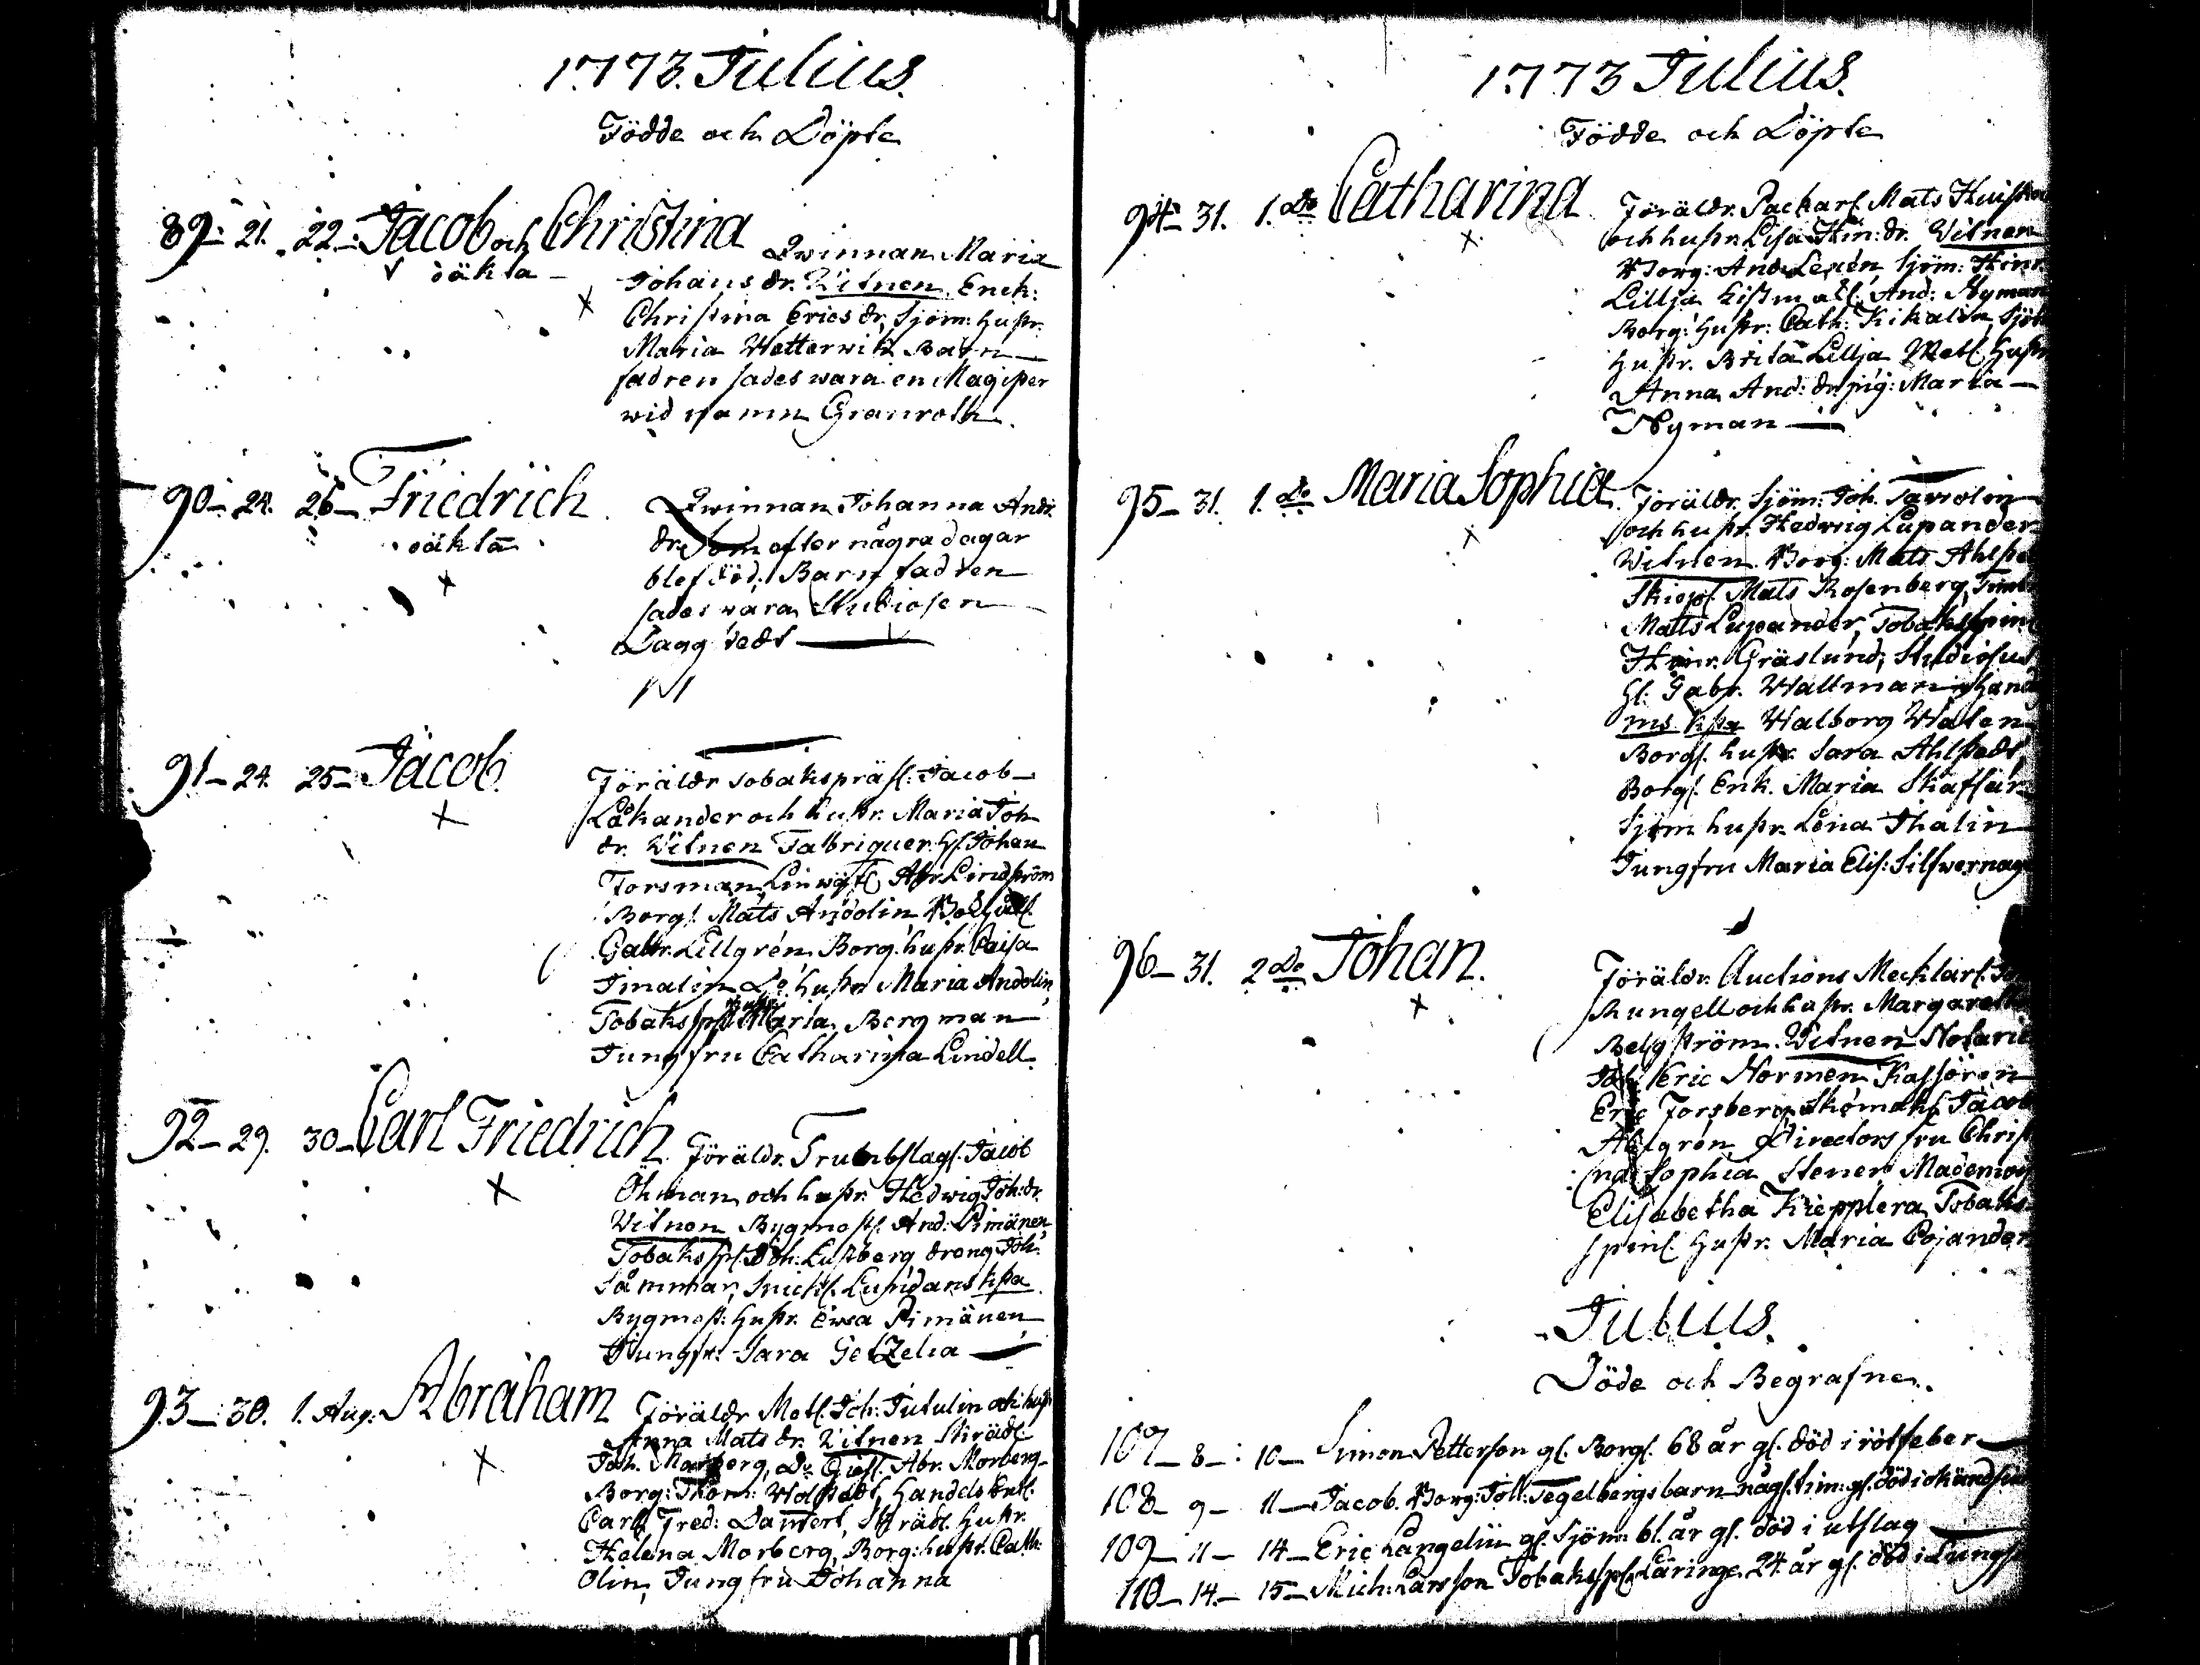 1773. Julius.
Födde och Döpte
89- 21. 22- Jacob och Christina
oäkta
Qwinnan Maria
Johans dr. Witnen. Enck:
Christina Erics dr, Sjöm: hustr.
Maria Wetterwik Barn
fadren sades wara en Magister
wid namn Granroth.
90- 24. 26- Friedrich
oäkta
Qwinnan Johanna And:
dr, som efter några dagar
blef död. Barn fadren
sades wara Studiosen
Taggstedt
91- 24. 25- Jacob
Föräldr Tobakspräss: Jacob
Låkander och hustr. Maria Joh
dr. Witnen Fabriquer. Hl. Johan
Forsman, Abr Lindström
Borgl. Mats Andolin,
Gabr. Lillgrén, Borg: hustr. Caisa
Finalin Do hustr Maria Andolin,
Tobaksp: hustr Maria Bergman
Jungfru Catharina Lindell.
92- 29. 30- Carl Friedrich
Föräldr. Trumbslagl. Jacob
Öhman och hustr. Hedwig Joh: dr.
Witnen Bygmest. And: Pimänen,
Tobakssp: Joh: Lustberg dreng Joh:
Såmmar, Snickl. Lundans
Bygmest: hustr. Ewa Pimänen
Jungfr. Sara Getzelia
93- 30. 1. Aug: Abraham
Föräldr Metl. Joh: Jutulin och hustr
Anna Mats dr. Witnen Skrädl.
Joh. Morberg, Do Gesl. Abr. Morberg
Borg: Thom: Wallstedt, Handels
Carl Fred: Skrädl. hustr.
Helena Morberg, Borg: hustr. Cath:
Olin, Jungfru Johanna
1773 Julius.
Födde och Döpte
94- 31. 1. do Catharina
Föräldr. Packarl. Mats
och hustr Lisa Hin: dr. Witnen
Borg: And: Lexén, Sjöm: Hinr
Lillja And: Nyman
Borg: hustr: Cath: Kikalin,
hustr. Brita Lillja Metl. hustr
Anna And: dr, pig: Maria
Nyman
95- 31. 1. do Maria Sophia
Föräldr, Sjöm: Joh. Tavolin
och hustr. Hedwig Lupander
Witnen. Borg: Mats Ahlste
Skiepl. Mats Rosenberg,
Mats Lupander, Tobaksspin
Hinr. Gräslund, Studiosus,
Hl. Gabr. Wallman, Hand
Walborg Walen
Borgl. hustr. Sara Ahlstedt,
Borgl. Enk. Maria
Sjöm hustr. Lena Thalin
Jungfru Maria Elis: Silfwernag
96- 31. 2 do Johan.
Föräldr. Auctions Mecklarl.
Rungell och hustr. Margareth
Bergström. Witnen Notarie
Eric Normen Kassören
Eric Forsberg, Skomak. Jacob
Ahlgrén, Directors fru Christ
na Sophia Stener, Mademois
Elisabetha Kepplera, Tobaks
spinl. hustr. Maria Cojander
Julius.
Döde och Begrafne.
107- 8- 10- Simon Petterson gl. Borgl. 68 år gl. död i rötfeber
108- 9- 11- Jacob. Borg: Joh: Tegelbergs barn någl. tim: gl. död i okänd
109- 11- 14- Eric Långelin gl. Sjöm 61. år gl. död i utslag
110- 14- 15- Mich: Larsson Tobakssp. Läringe 24 år gl. död i Lungs